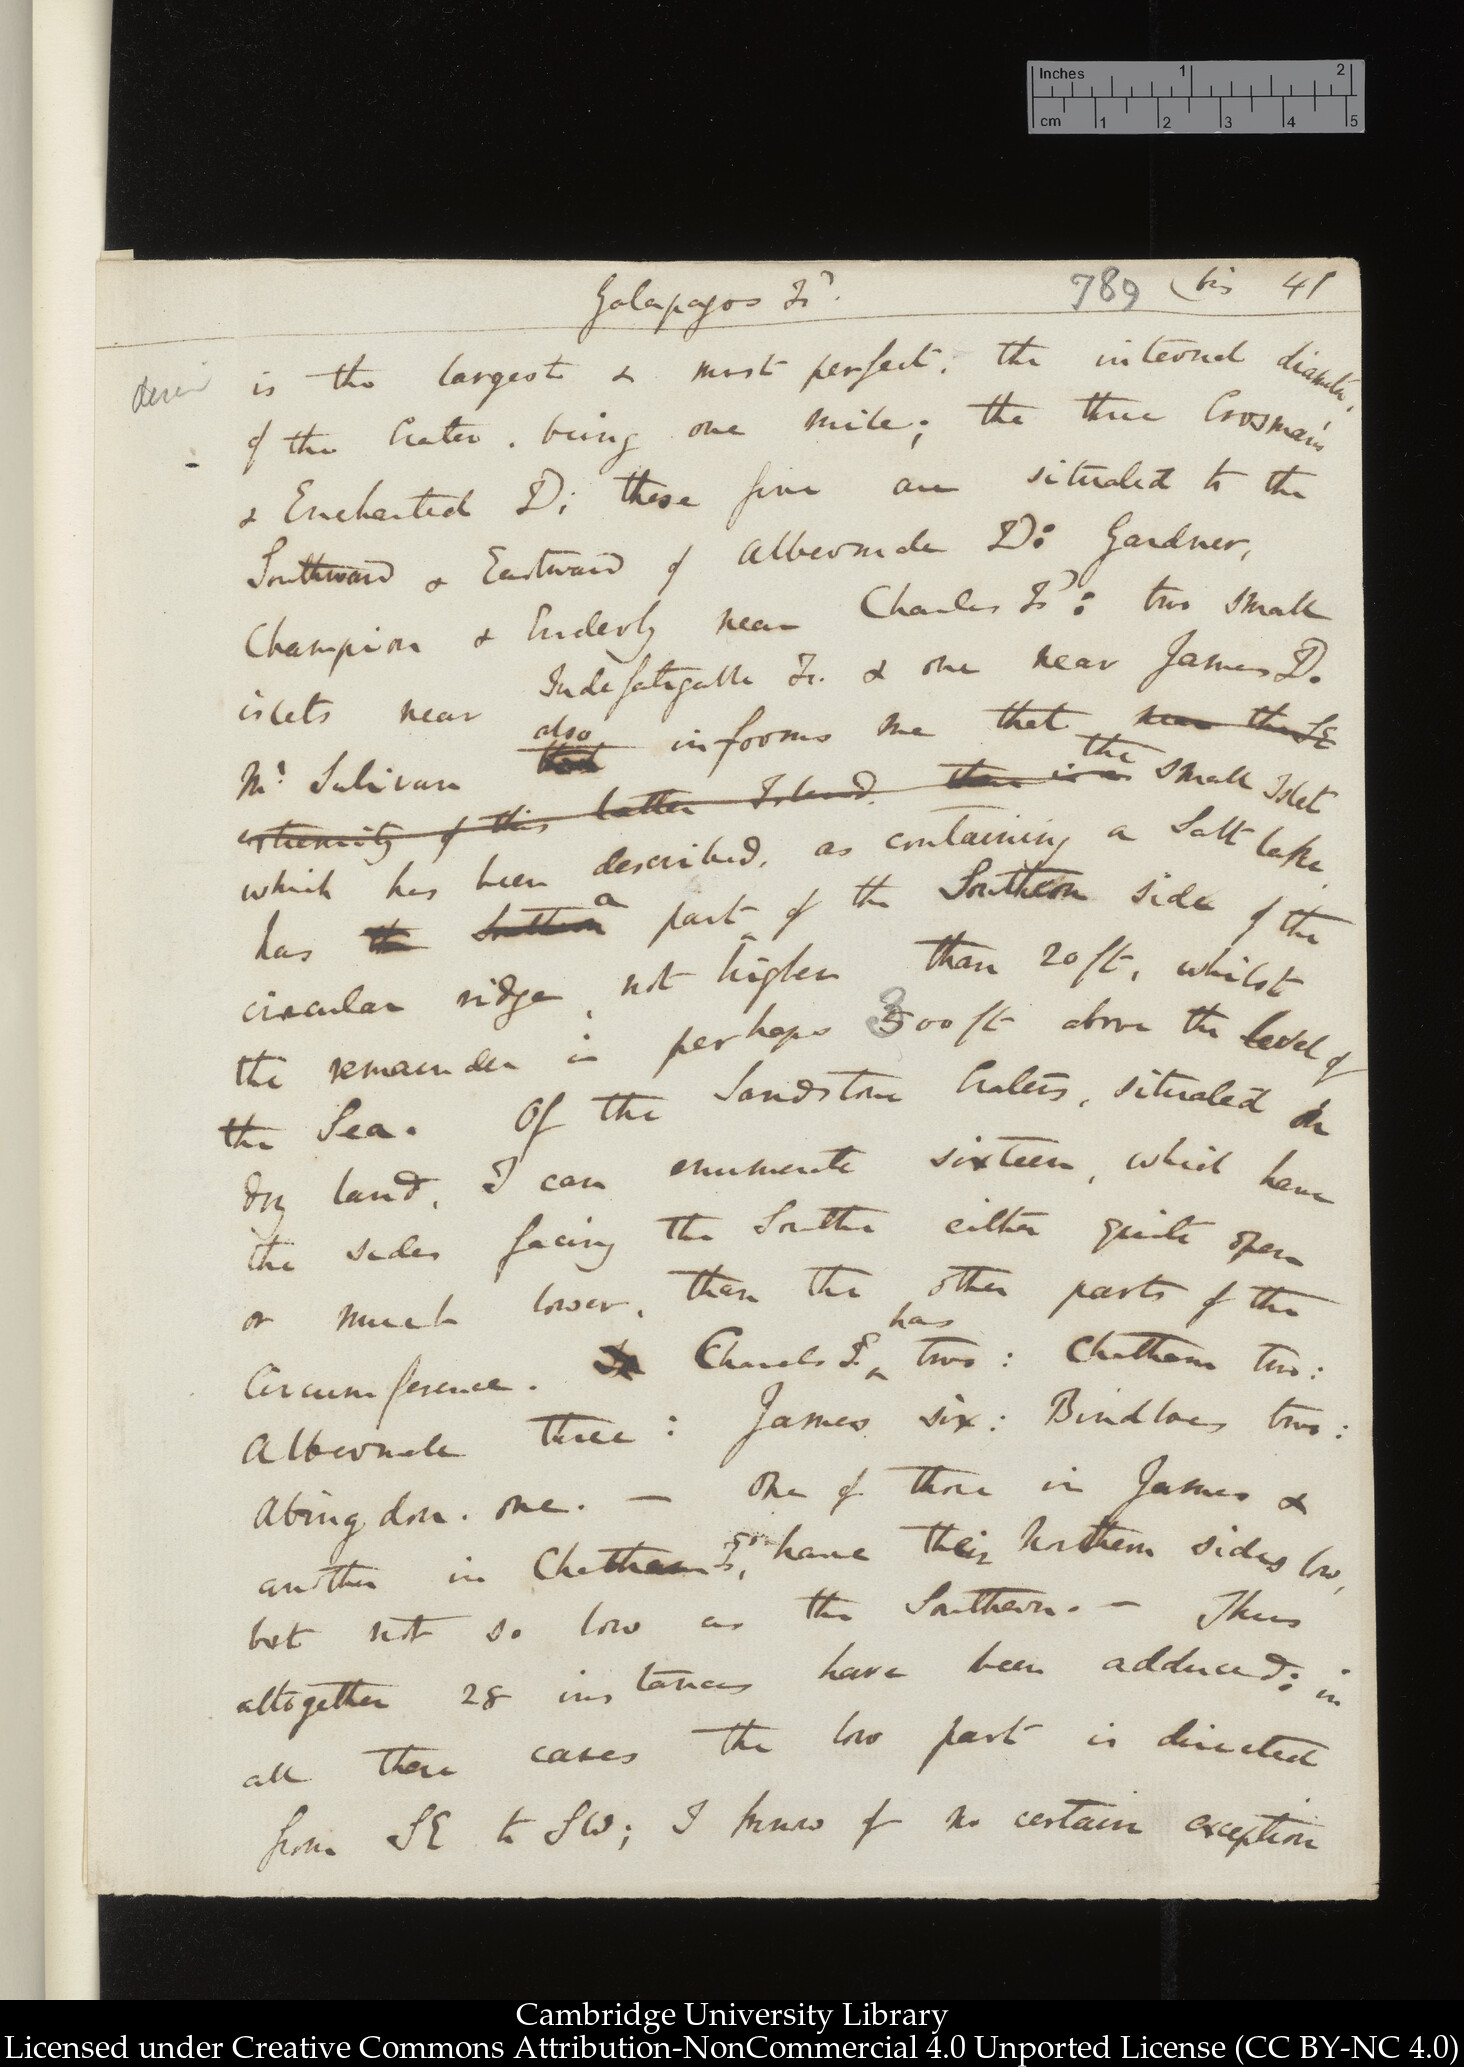 Inches 1 2
cm 1 2 3 4 5
Galapagos Is. 789 (bis 41
is the largest & most perfect; the internal diameter,
of the Crater, being one mile; the three Crosman's
& Enchanted Isd; these five are situated to the
Southward & Eastward of Albermale Isd: Gardner,
Champion & Enderby near Charles Isd: two small
islets near Indefatigable Is. & one near James Isd.
also
Mr Sulivan that informs me that near the SE
the
extremity of this latter Island there is a small Islet
which has been described, as containing a Salt lake,
a
has the Southern part of the Southern side of the
circular ridge, not higher than 20 ft, whilst
the remainder is perhaps 300 ft above the level of
the Sea. Of the Sandstone Craters, situated on
dry land, I can enumerate sixteen, which have
the sides facing the South either quite open
or much lower, than the other parts of the
has
Circumference. Charles Isd two: Chatham two:
Albermale three: James six: Bindloes two:
Abingdon. one. — One of those in James &
another in Chatham Isd, have their Northern sides low,
but not so low as the Southern. — Thus
altogether 28 instances have been adduced; in
all these cases the low part is directed
from SE to SW; I know of no certain exception
Cambridge University Library
Licensed under Creative Commons Attribution-NonCommercial 4.0 Unported License (CC BY-NC 4.0)